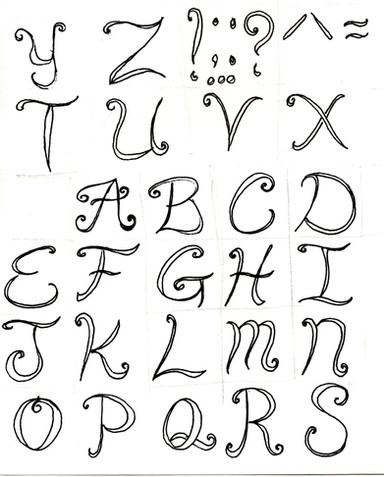 Y Z ! : ; ? ^ ≈
T U V X
A B C D
E F G H I
J K L M N
O P Q R S